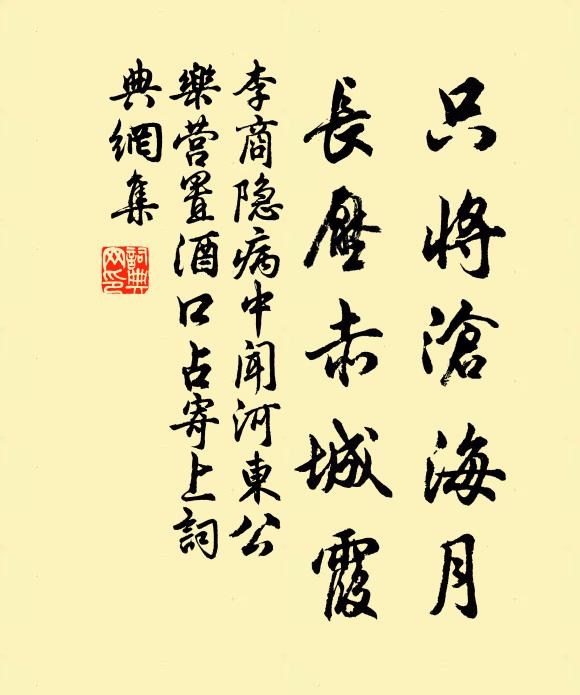 只將滄海月
長壓赤城霞
李商隐病中闻河東公
樂营置酒口占寄上詞
典網集
詞典
网印